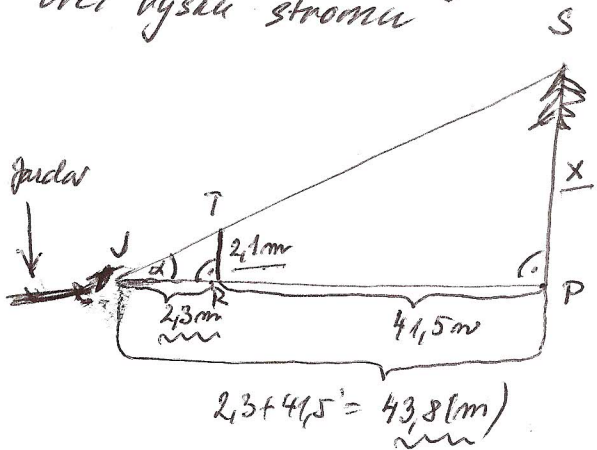 výšku stromu
S
Jarda
T
x
J
2,1m
α
R
P
2,3m
41,5m
2,3+41,5 = 43,8(m)